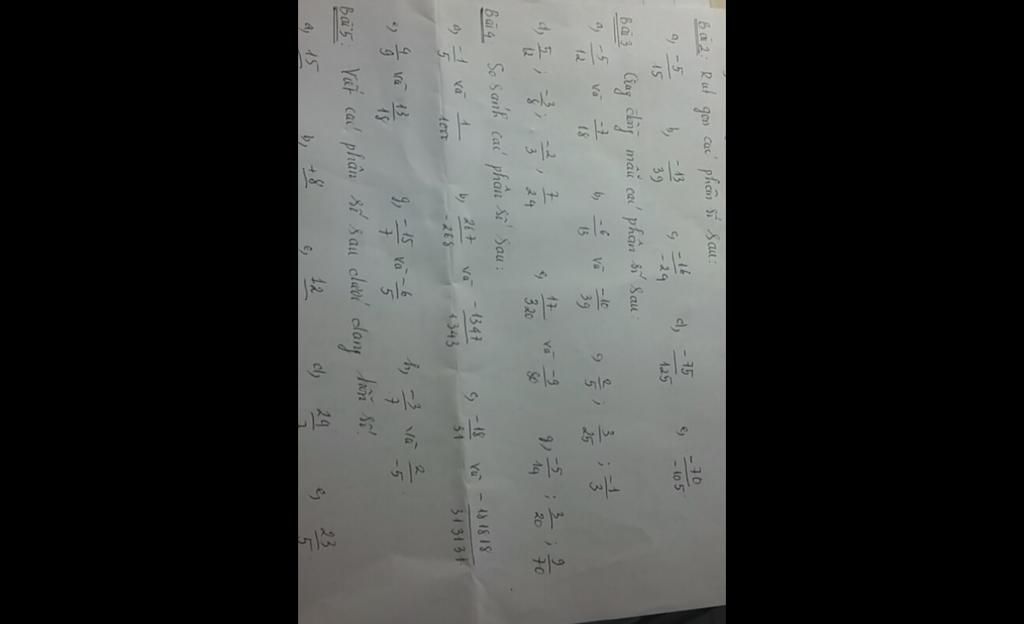 Bài 2: Rút gọn các phân số sau:
a, -5/15 b, -13/39 c, -16/-24 d, -75/125 e, -70/-105
Bài 3 Quy đồng mẫu các phân số sau:
a, -5/12 và -7/18 b, -6/13 và -10/39 c, 2/5 ; 3/25 ; -1/3
d, 5/12 ; -3/8 ; -2/3 , 7/24 e, 17/320 và -9/80 g, -5/14 ; 3/20 ; 9/70
Bài 4: So sánh các phân số sau:
a, -1/5 và 1/1000 b, 267/-268 và -1347/1343 c, -18/31 và -181818/313131
e, 4/9 và 13/18 g, -15/7 và -6/5 h, -3/7 và 2/-5
Bài 5: Viết các phân số sau dưới dạng hỗn số:
a, 15 b, +8 c, 12 d, 24 e, 23/5